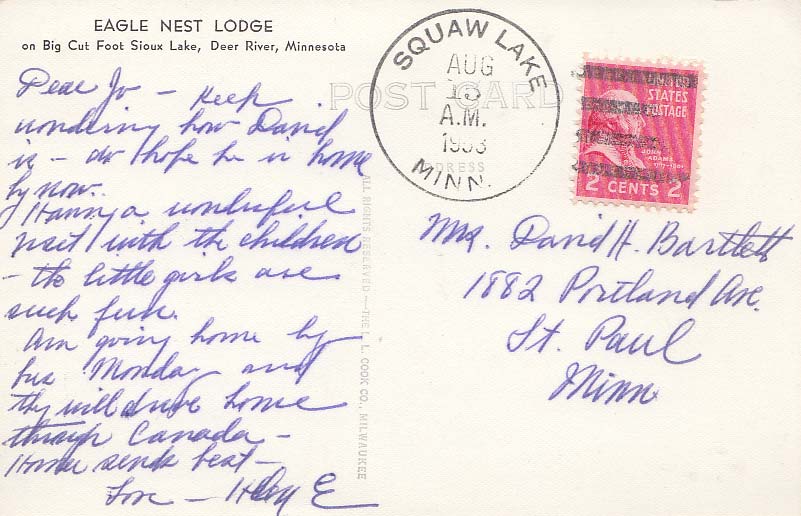 EAGLE NEST LODGE
on Big Cut Foot Sioux Lake, Deer River, Minnesota
Dear Jo - Keep
wondering how David
is - do hope he is home
by now.
Having a wonderful
visit with the children
- the little girls are
such fun.
Am going home by
bus Monday and
they will drive home
through Canada -
sends best -
Love -
POST CARD
ADDRESS
SQUAW LAKE
AUG
13
A.M.
1953
MINN.
UNITED
STATES
POSTAGE
JOHN
ADAMS
2 CENTS 2
Mrs. David H. Bartlett
1882 Portland Ave.
St. Paul
Minn
ALL RIGHTS RESERVED—THE L. L. COOK CO., MILWAUKEE